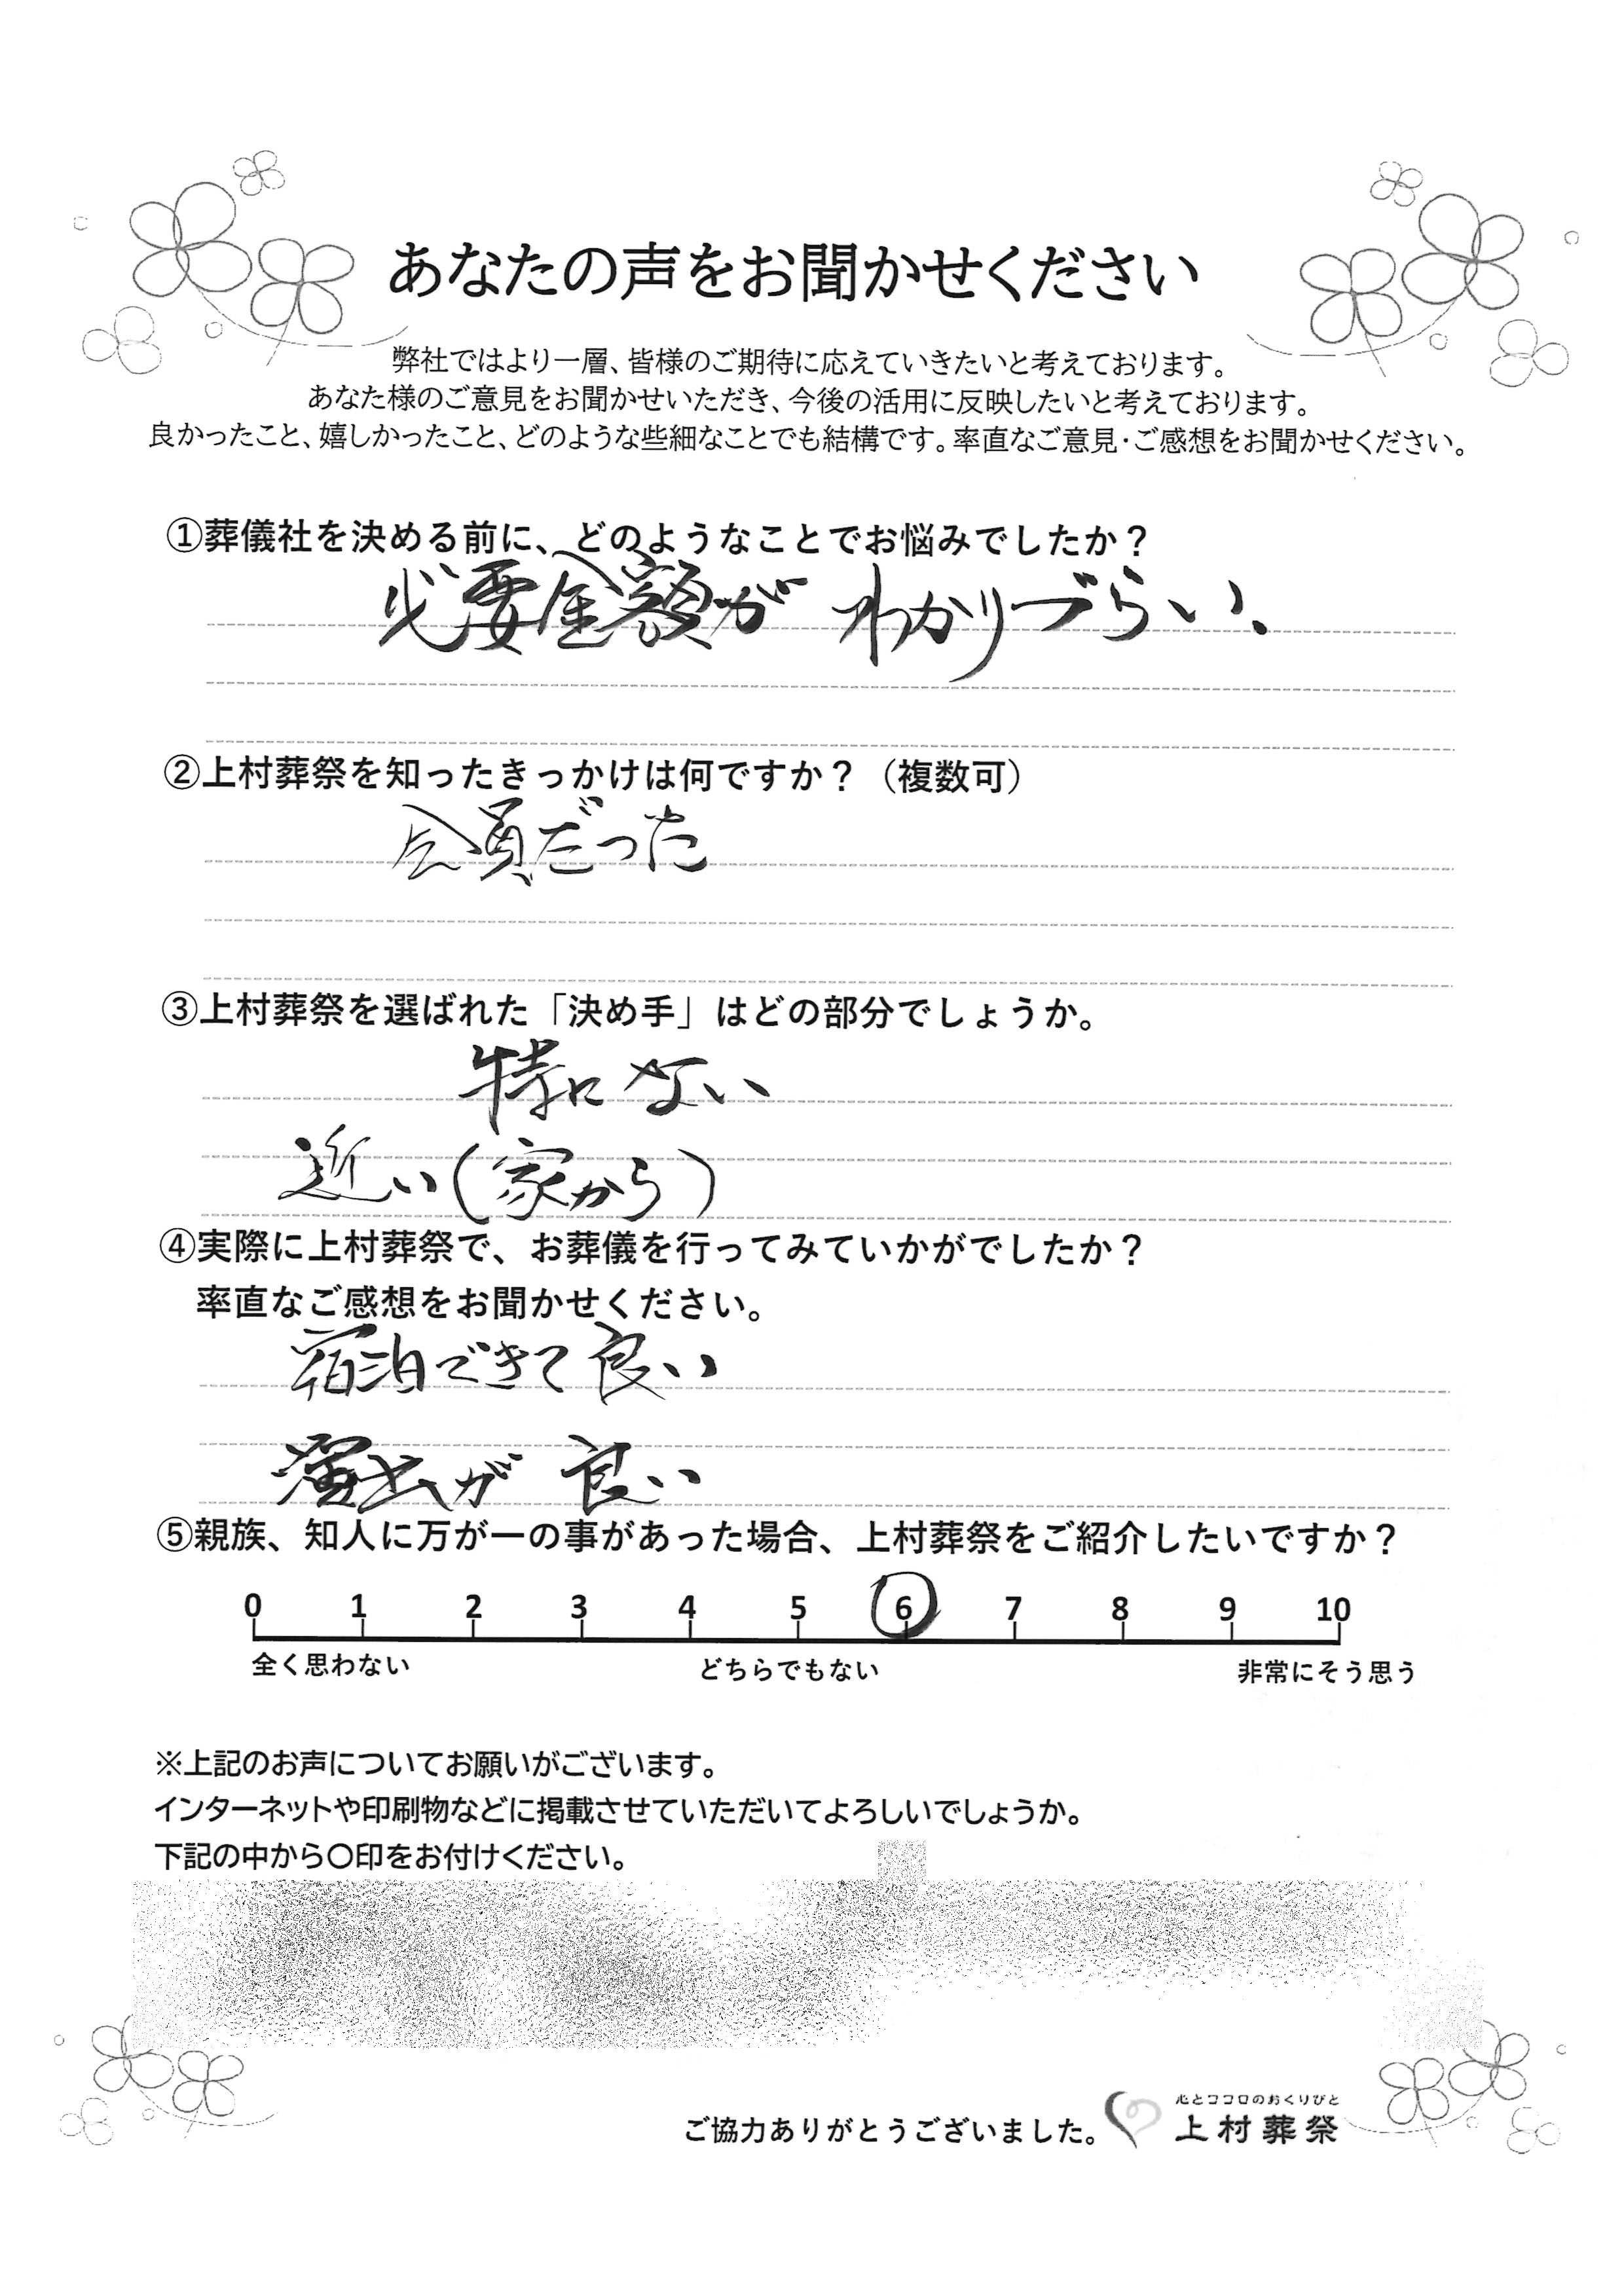 あなたの声をお聞かせください
弊社ではより一層、皆様のご期待に応えていきたいと考えております。
あなた様のご意見をお聞かせいただき、今後の活用に反映したいと考えております。
良かったこと、嬉しかったこと、どのような些細なことでも結構です。率直なご意見・ご感想をお聞かせください。
①葬儀社を決める前に、どのようなことでお悩みでしたか？
必要金額が わかりづらい、
②上村葬祭を知ったきっかけは何ですか？（複数可）
会員だった
③上村葬祭を選ばれた「決め手」はどの部分でしょうか。
特にない
近い(家から)
④実際に上村葬祭で、お葬儀を行ってみていかがでしたか？
率直なご感想をお聞かせください。
宿泊できて良い
演出が 良い
⑤親族、知人に万が一の事があった場合、上村葬祭をご紹介したいですか？
0 1 2 3 4 5 6 7 8 9 10
全く思わない どちらでもない 非常にそう思う
※上記のお声についてお願いがございます。
インターネットや印刷物などに掲載させていただいてよろしいでしょうか。
下記の中から〇印をお付けください。
心とココロのおくりびと
ご協力ありがとうございました。 上村葬祭